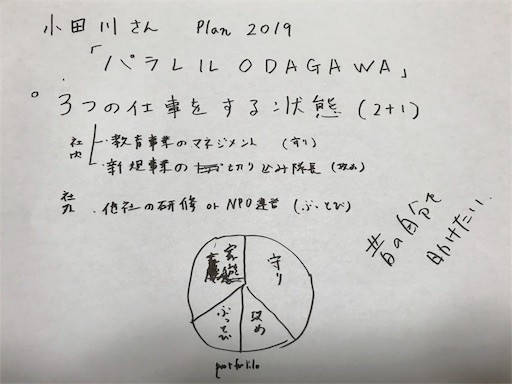 小田川さん Plan 2019
「パラレル ODAGAWA」
3つの仕事をする状態 (2+1)
社内
・教育事業のマネジメント (守り)
・新規事業の切り込み隊長 (攻め)
社外
・他社の研修 or NPO運営 (ぶっとび)
昔の自分を
助けたい
家庭
守り
ぶっとび
攻め
portfolio